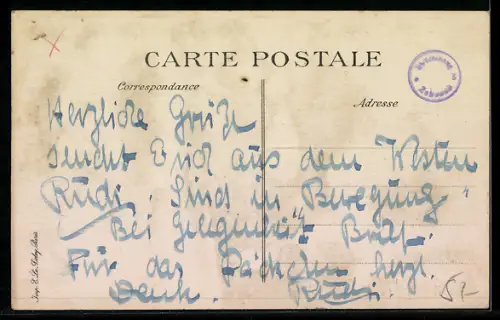 CARTE POSTALE
Correspondance
Adresse
Herzliche Grüße
sendet Euch aus dem Westen
Rudi. Sind in "Bewegung"
Bei Gelegenheit Brief.
Für das Päckchen herzl.
Dank. Rudi.
Imp. Paris